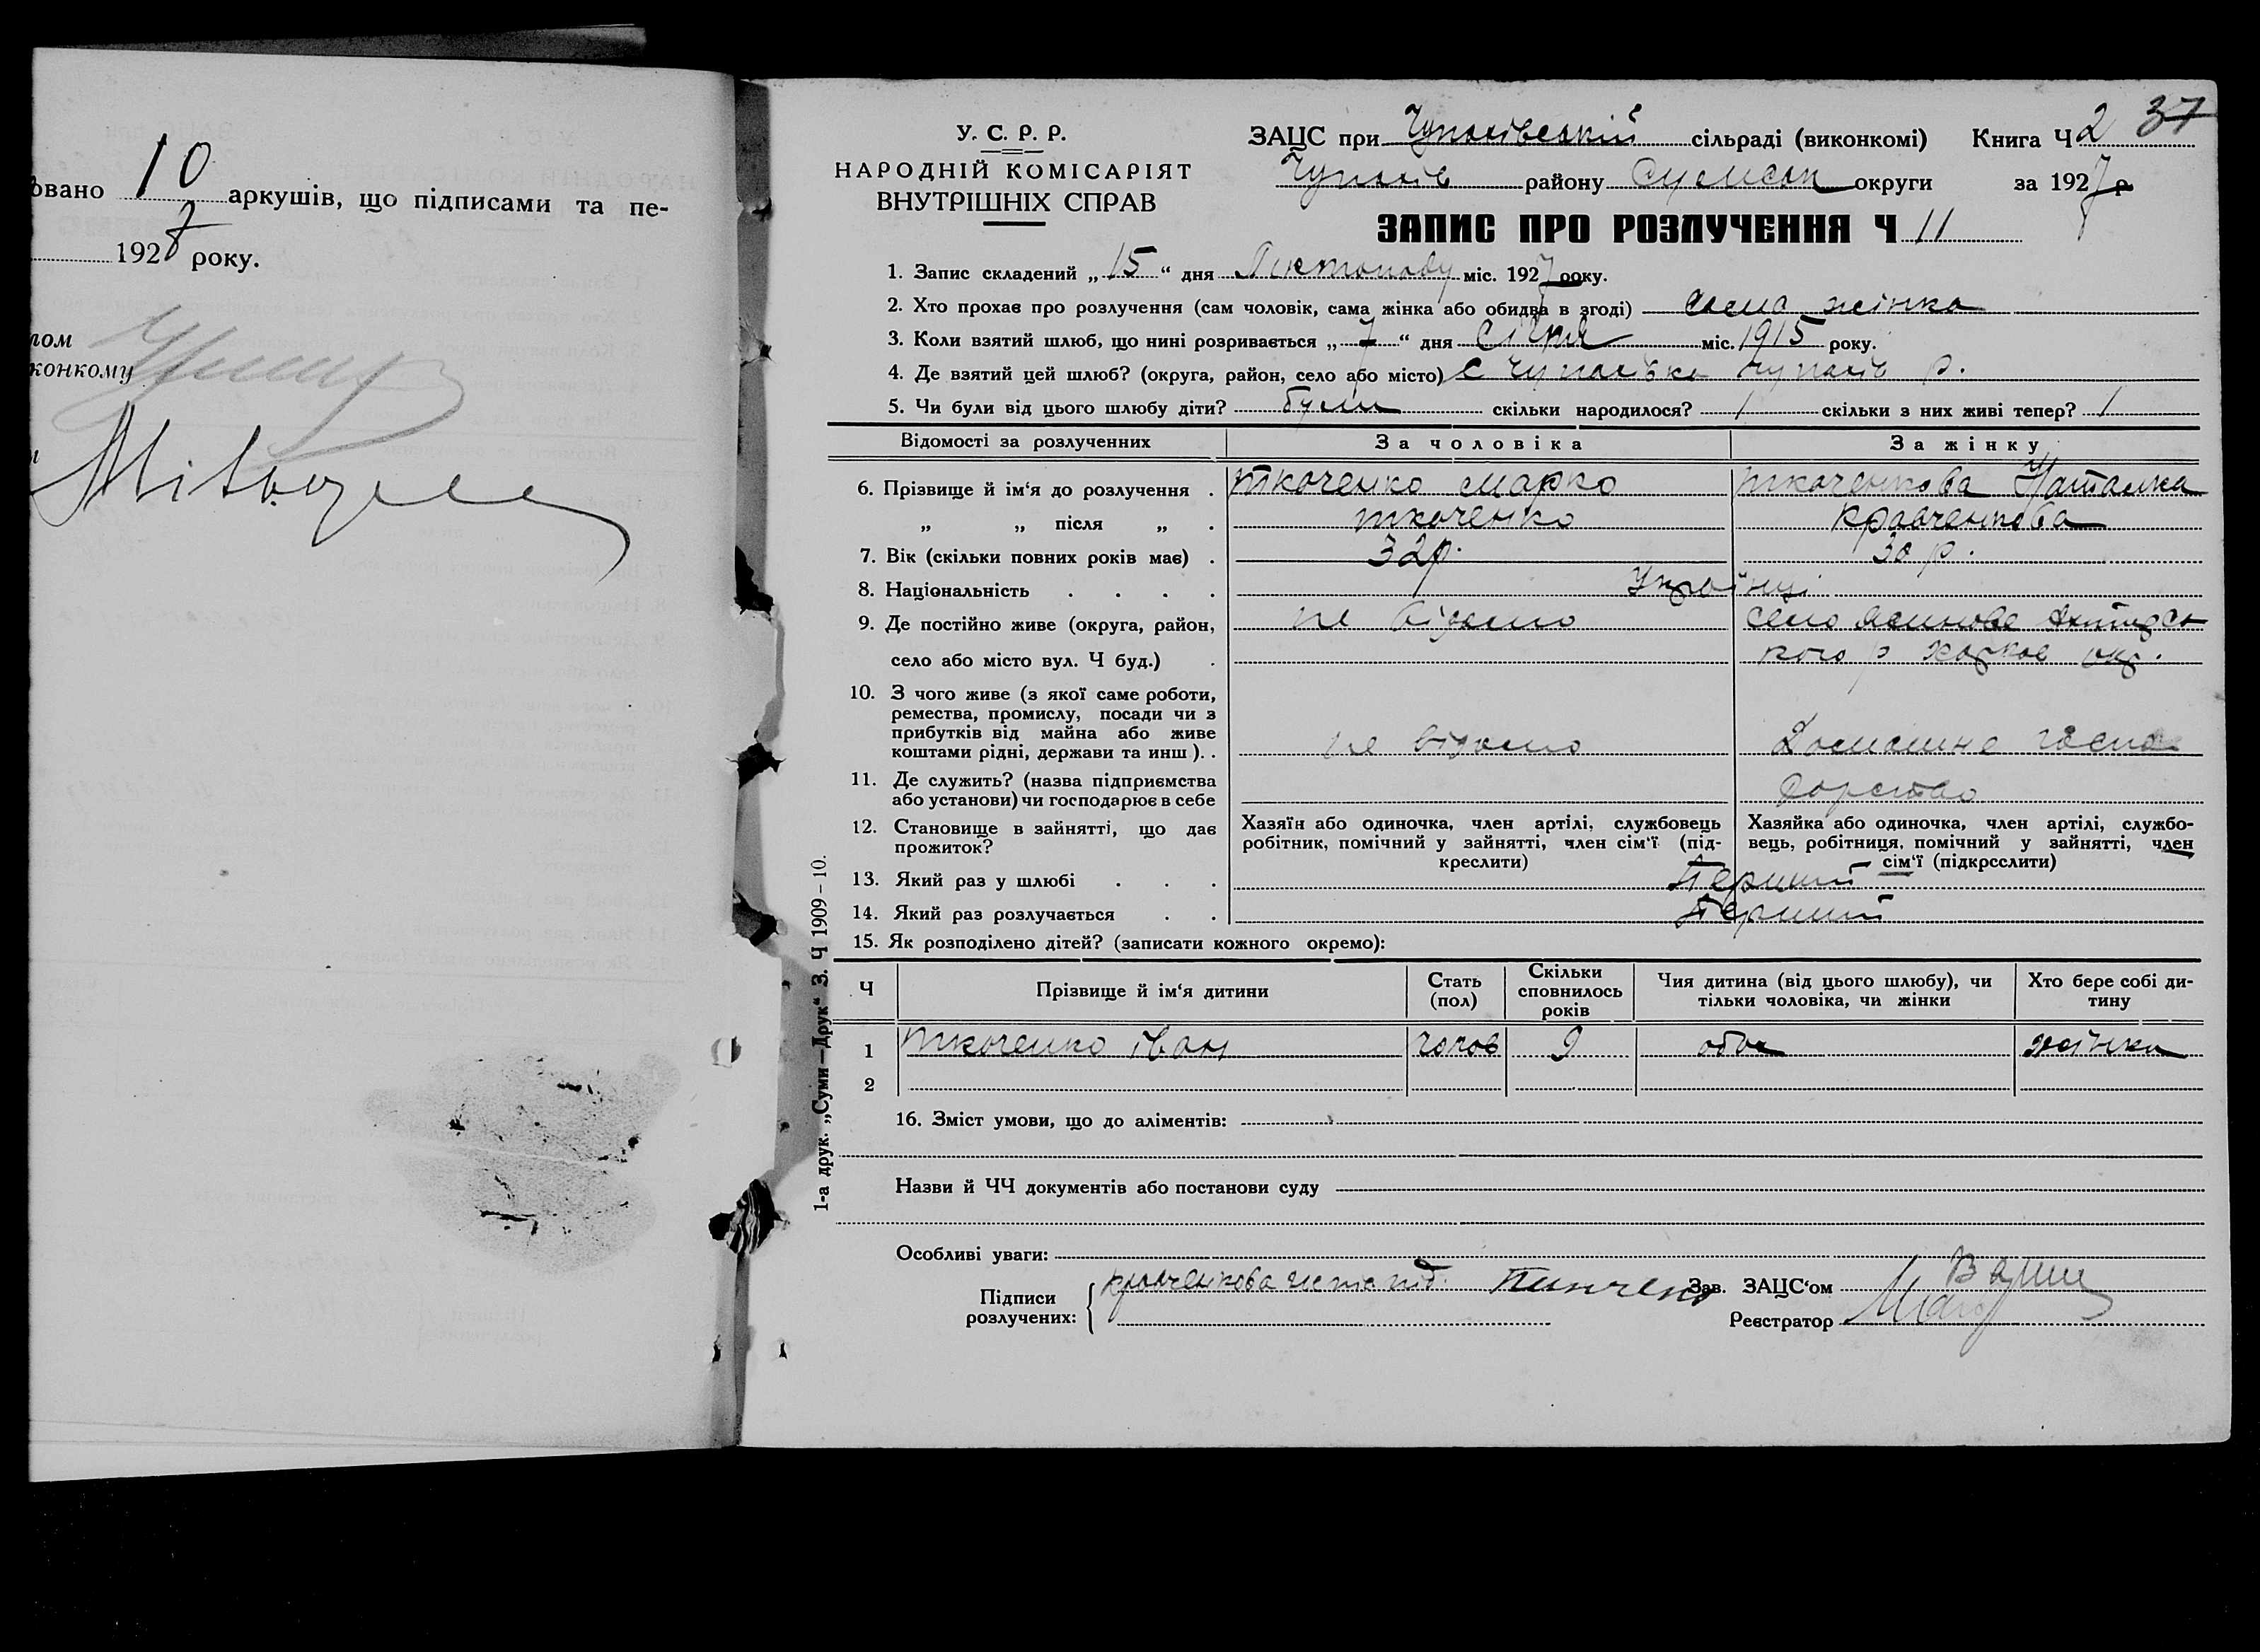 овано 10 аркушів, що підписами та пе-
1927 року.
лом
конкому
У. С. Р. Р.
НАРОДНІЙ КОМІСАРІЯТ
ВНУТРІШНІХ СПРАВ
ЗАЦС при Чупахівській сільраді (виконкомі) Книга Ч 2 37
Чупахів району Сумськ округи за 1927 р
ЗАПИС ПРО РОЗЛУЧЕННЯ Ч 11
1. Запис складений „ 15 “ дня Листопаду міс. 1927 року.
2. Хто прохає про розлучення (сам чоловік, сама жінка або обидва в згоді) сама жінка
3. Коли взятий шлюб, що нині розривається „ 7 “ дня Січня міс. 1915 року.
4. Де взятий цей шлюб? (округа, район, село або місто) с Чупахівка Чупахів р.
5. Чи були від цього шлюбу діти? були скільки народилося? 1 скільки з них живі тепер? 1
Відомості за розлученних За чоловіка За жінку
6. Прізвище й ім‘я до розлучення . Ткаченко Марко Ткаченкова Наталка
„ „ після „ . Ткаченко Кравченкова
7. Вік (скільки повних років має) . 32 р. 30 р.
8. Національність . . . . Українці
9. Де постійно живе (округа, район, не відомо село Ясенове Охтирсь
село або місто вул. Ч буд.) . кого р Харков окр.
10. З чого живе (з якої саме роботи,
ремества, промислу, посади чи з
прибутків від майна або живе
коштами рідні, держави та инш ). . не відомо Домашнє госпо
11. Де служить? (назва підприємства
або установи) чи господарює в себе дарство
12. Становище в зайнятті, що дає
прожиток?
Хазяїн або одиночка, член артілі, службовець
робітник, помічний у зайнятті, член сім‘ї (під-
креслити)
Хазяйка або одиночка, член артілі, службо-
вець, робітниця, помічний у зайнятті, член
сім‘ї (підкрсслити)
13. Який раз у шлюбі . . . Перший
14. Який раз розлучається . . Перший
15. Як розподілено дітей? (записати кожного окремо):
Ч Прізвище й ім‘я дитини Стать (пол) Скільки сповнилось років Чия дитина (від цього шлюбу), чи тільки чоловіка, чи жінки Хто бере собі ди-тину
1 Ткаченко Іван чолов 9 обох жінка
2
16. Зміст умови, що до аліментів:
Назви й ЧЧ документів або постанови суду
Особливі уваги:
Підписи
розлучених:
Кравченкова непис під.
Зав. ЗАЦС‘ом
Реєстратор
1-а друк. „Суми—Друк“ З. Ч 1909–10.